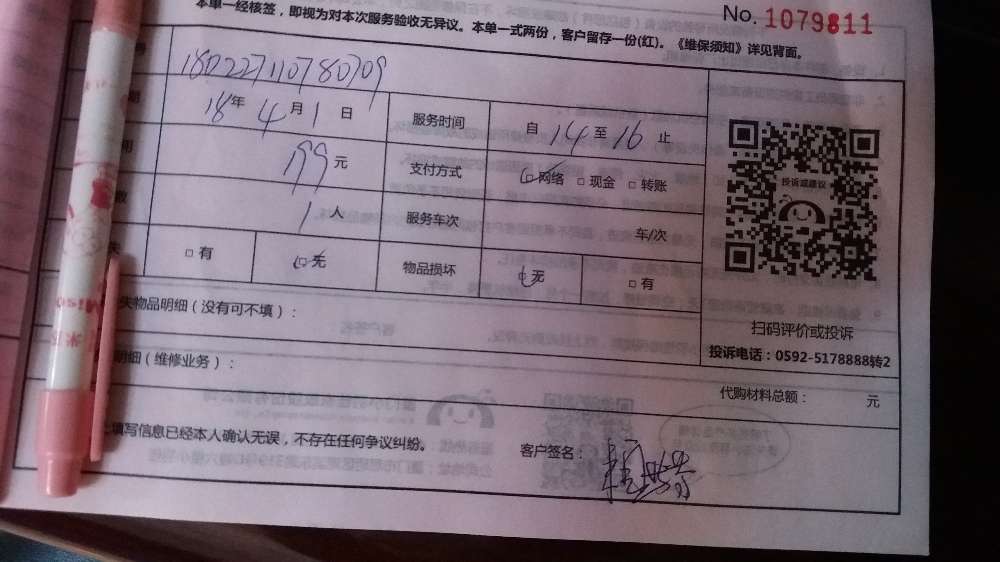 本单一经核签，即视为对本次服务验收无异议。本单一式两份，客户留存一份(红)。《维保须知》详见背面。
No. 1079811
180227110780709
18年4月1日 服务时间 自14至16止
199元 支付方式 □网络 □现金 □转账
1人 服务车次 车/次
□有 □无 物品损坏 □无 □有
投诉或建议
扫码评价或投诉
投诉电话：0592-5178888转2
失物品明细（没有可不填）：
明细（维修业务）：
代购材料总额： 元
填写信息已经本人确认无误，不存在任何争议纠纷。 客户签名：